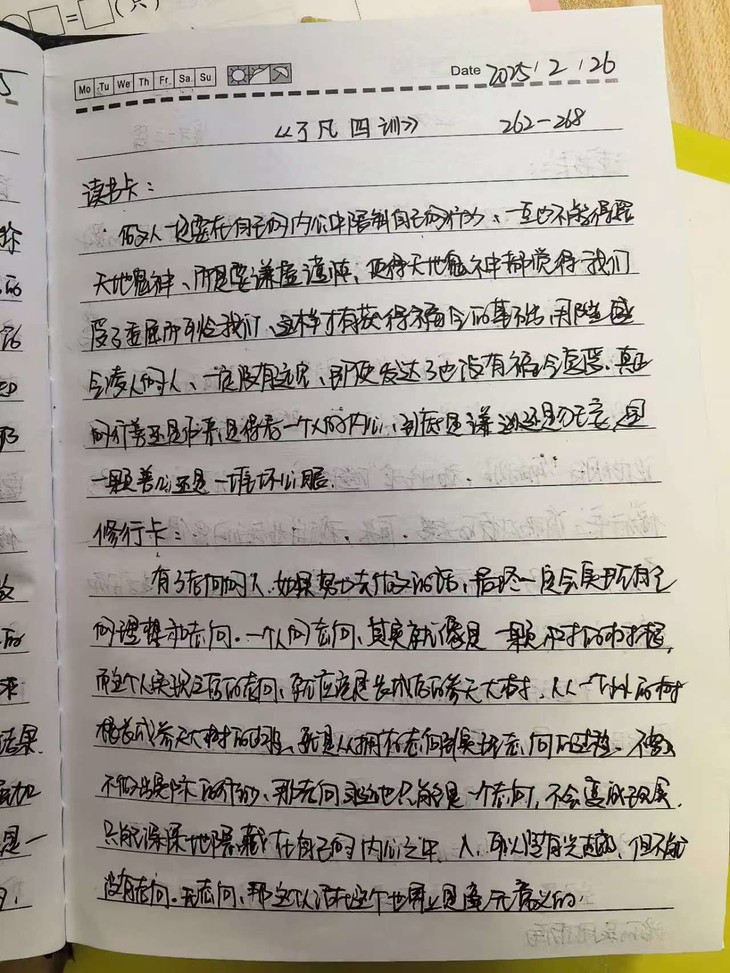 Mo Tu We Th Fr Sa Su
Date 2025/2/26
《了凡四训》 262-268
读书卡:
做人一定要在自己的内心中限制自己的行为、一点也不能得罪
天地鬼神、而是要谦虚谨慎、使得天地鬼神都觉得我们
受了委屈而可怜我们、这样才有获得福分的基础、那些盛
令凌人的人、一定没有远见、即使发达了也没有福分享受。真正
的行善还是作恶,是得看一个人的内心、到底是谦逊还是狂妄,是
一颗善心还是一堆坏心眼.
修行卡:
有了志向的人,如果努力去做的话,最终一定会实现自己
的理想和志向。一个人的志向、其实就像是一颗小树的树根,
而这个人实现之后的志向、就应该是长成后的参天大树,从一个小小的树
根长成参天大树的过程、就是从拥有志向到实现志向的过程。不
不做出实际的行动、那志向永远也只能是一个志向,不会变成现实,
只能深深地隐藏在自己的内心之中。人,可以没有兴趣,但不能
没有志向。无志向、那这个人活在这个世界上是毫无意义的.